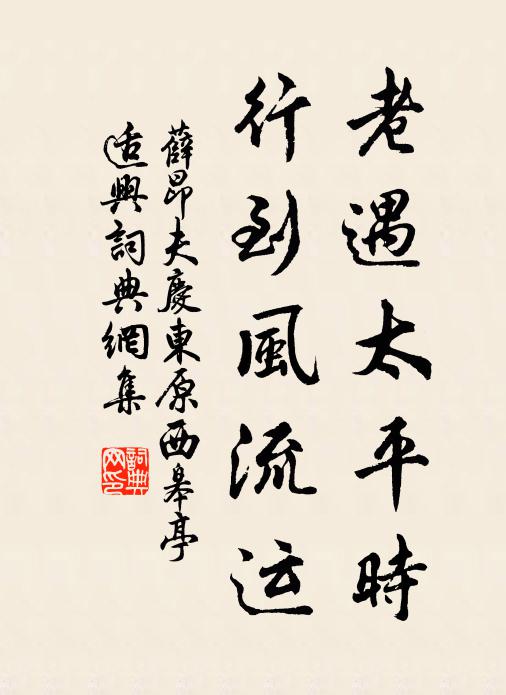 老遇太平時
行到風流运
薛昂夫慶東原西皋亭
适興詞典網集
詞典网印